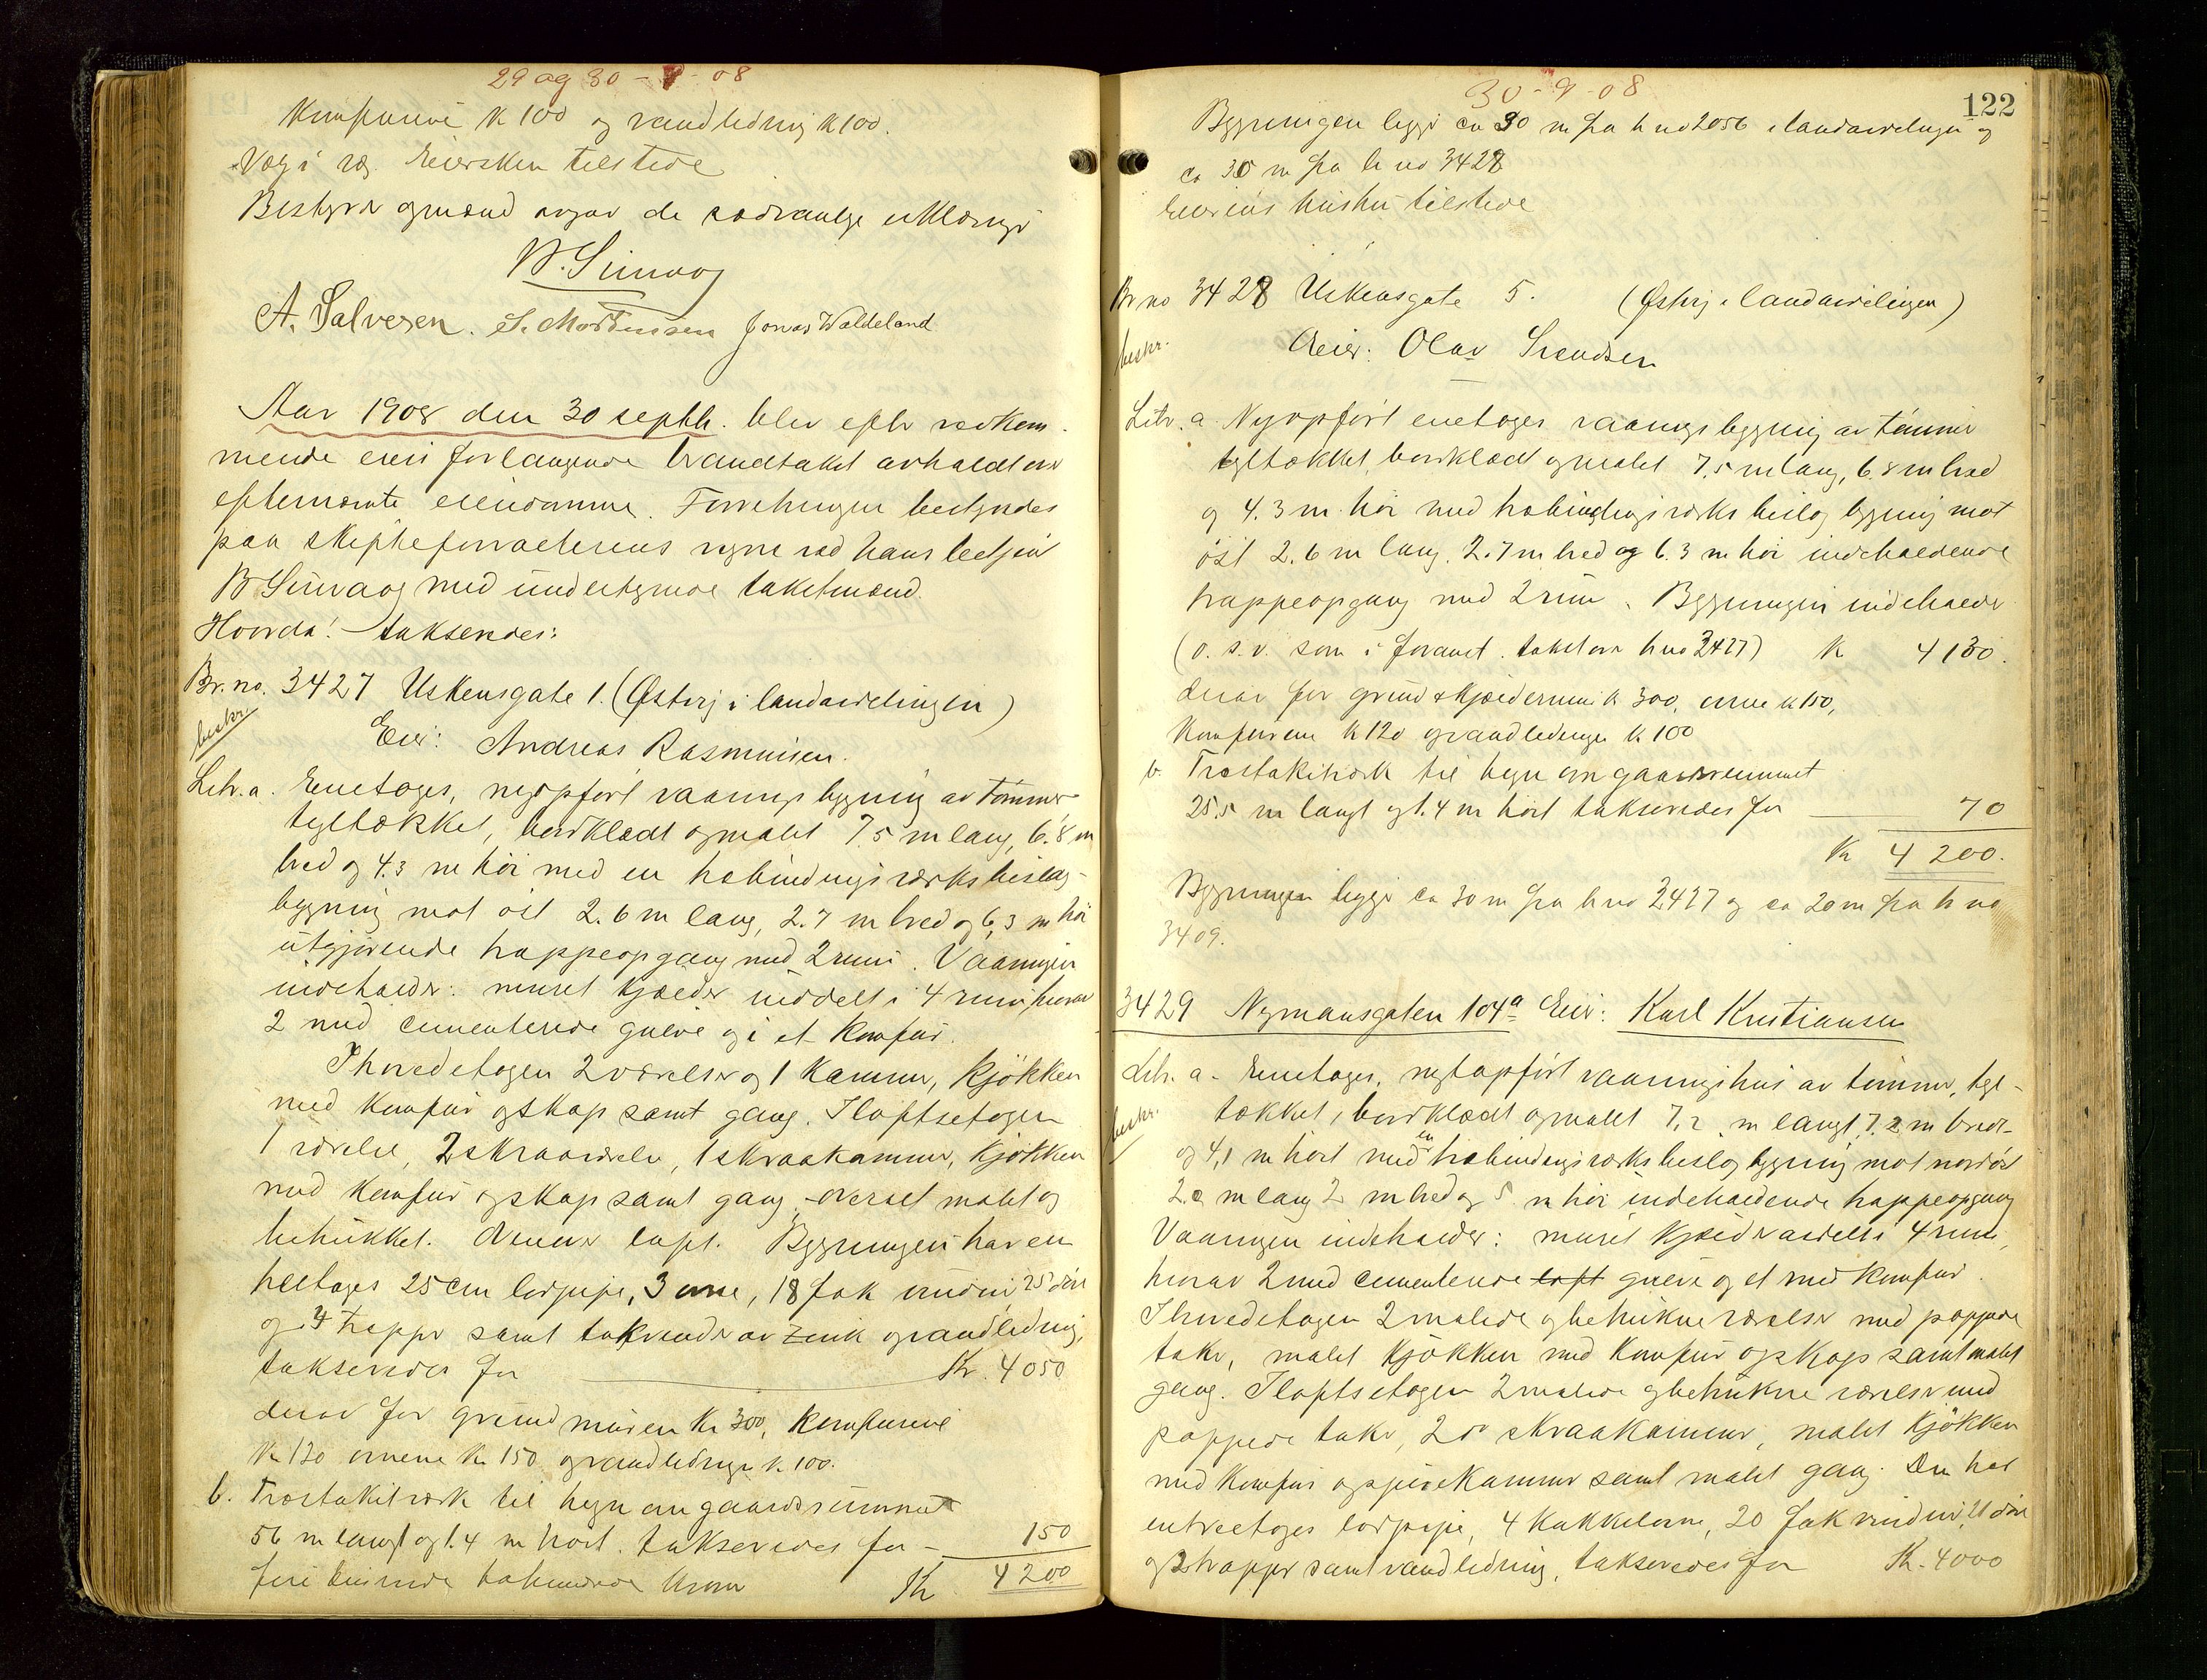 29 og 30 - 9 - 08
Komfurene K 100 og vandledning K 100.
Væg i væg. Eiersken tilstede
Bestyrer og mænd avgav de sedvanlige erklæringer
B. Simvog
A. Salvesen. S. Mortensen Jonas Waldeland
Aar 1908 den 30 septbr. blev efter vedkom-
mende eiers forlangende brandtakst avholdt over
efternævnte eiendomme. Forretningen bestyredes
paa skifteforvalterens vegne ved hans betjent
B Simvaag med undertegnede takstmænd.
Hvorda! - takseredes:
Br. no. 3427 Uskensgate 1. (Østrij i landavdelingen)
beskr.
Eier: Andreas Rasmussen.
Litr. a. Enetages, nyopført vaaningsbygning av tømmer
tegltækket, bordklædt og malet 7,5 m lang, 6.8 m
bred og 4.3 m høi med en trebindingsverks beslag-
bygning mot øst 2.6 m lang, 2.7 m bred og 6,3 m høi
utgjørende trappeopgang med 2 rum. Vaaningen
indeholder: muret kjælder inddelt i 4 rum hvorav
2 med cementerede gulve og i et komfur.
I hovedetagen 2 værelser og 1 kammer, kjøkken
med komfur og skap samt gang. I loftsetagen
1 værelse, 2 skraaværelser, 1 skraakammer, kjøkken
med komfur og skap samt gang - overalt malet og
betrukket. Øverst loft. Bygningen har en
treetages 25 cm lodpipe, 3 ovne, 18 fak vinduer, 25 døre
og 4 trapper samt takrender av zink og vandledning,
takseredes for Kr. 4050
derav for grundmuren Kr 300, komfurene
Kr 120 ovnene Kr 150 og vandledninger k. 100.
b. Træstakitverk til hegn om gaardsrummet
56 m langt og 1.4 m høit. takseredes for - 150
fire tusinde tohundrede kroner Kr 4200
30 - 9 - 08
122
Bygningen ligger ca 30 m fra br no 2056 i landavdelingen og
ca 30 m fra br no 3428
Eierens hustru tilstede
Br no 3428 Uskensgate 5. (Østrij i landavdelingen)
beskr.
Eier: Olav Svendsen
Litr. a Nyopført enetages vaaningsbygning av tømmer
tegltækket, bordklædt og malet 7,5 m lang, 6.8 m bred
og 4.3 m høi med trebindingsverks beslag bygning mot
øst 2.6 m lang. 2.7 m bred og 6.3 m høi indeholdende
trappeopgang med 2 rum. Bygningen indeholder
(o. s. v. som i foranst. takst over br no 3427) Kr 4130.
derav for grund & kjælderrum k 300, ovne k 150,
komfurene k 120 og vandledninger k 100
b. Træstakitverk til hegn om gaardsrummet
25.5 m langt og 1.4 m høit takseredes for 70
Kr 4200.
Bygningen ligger ca 30 m fra br no 3427 og ca 20 m fra br no
3409.
3429 Nymansgaten 104a Eier: Karl Kristiansen
Litr. a - Enetages, nytopført vaaningshus av tømmer, tegl-
beskr.
tækket, bordklædt og malet 7,2 m langt, 7.2 m bredt
og 4,1 m høit med en trebindingsverks beslag bygning mot nordøst
2.2 m lang 2 m bred og 5 m høi indeholdende trappeopgang
Vaaningen indeholder: muret kjælder avdelt i 4 rum,
hvorav 2 med cementerede loft gulve og et med komfur.
I hovedetagen 2 malede og betrukne værelser med pappede
take, malet kjøkken med komfur og skap samt malet
gang. I loftsetagen 2 malede og betrukne værelser med
pappede take, 2 do skraakammer, malet kjøkken
med komfur og spisekammer samt malet gang. Den har
en treetages lodpipe, 4 kakkelovne, 20 fak vinduer, 21 døre
og 3 trapper samt vandledning, takseredes for Kr. 4000